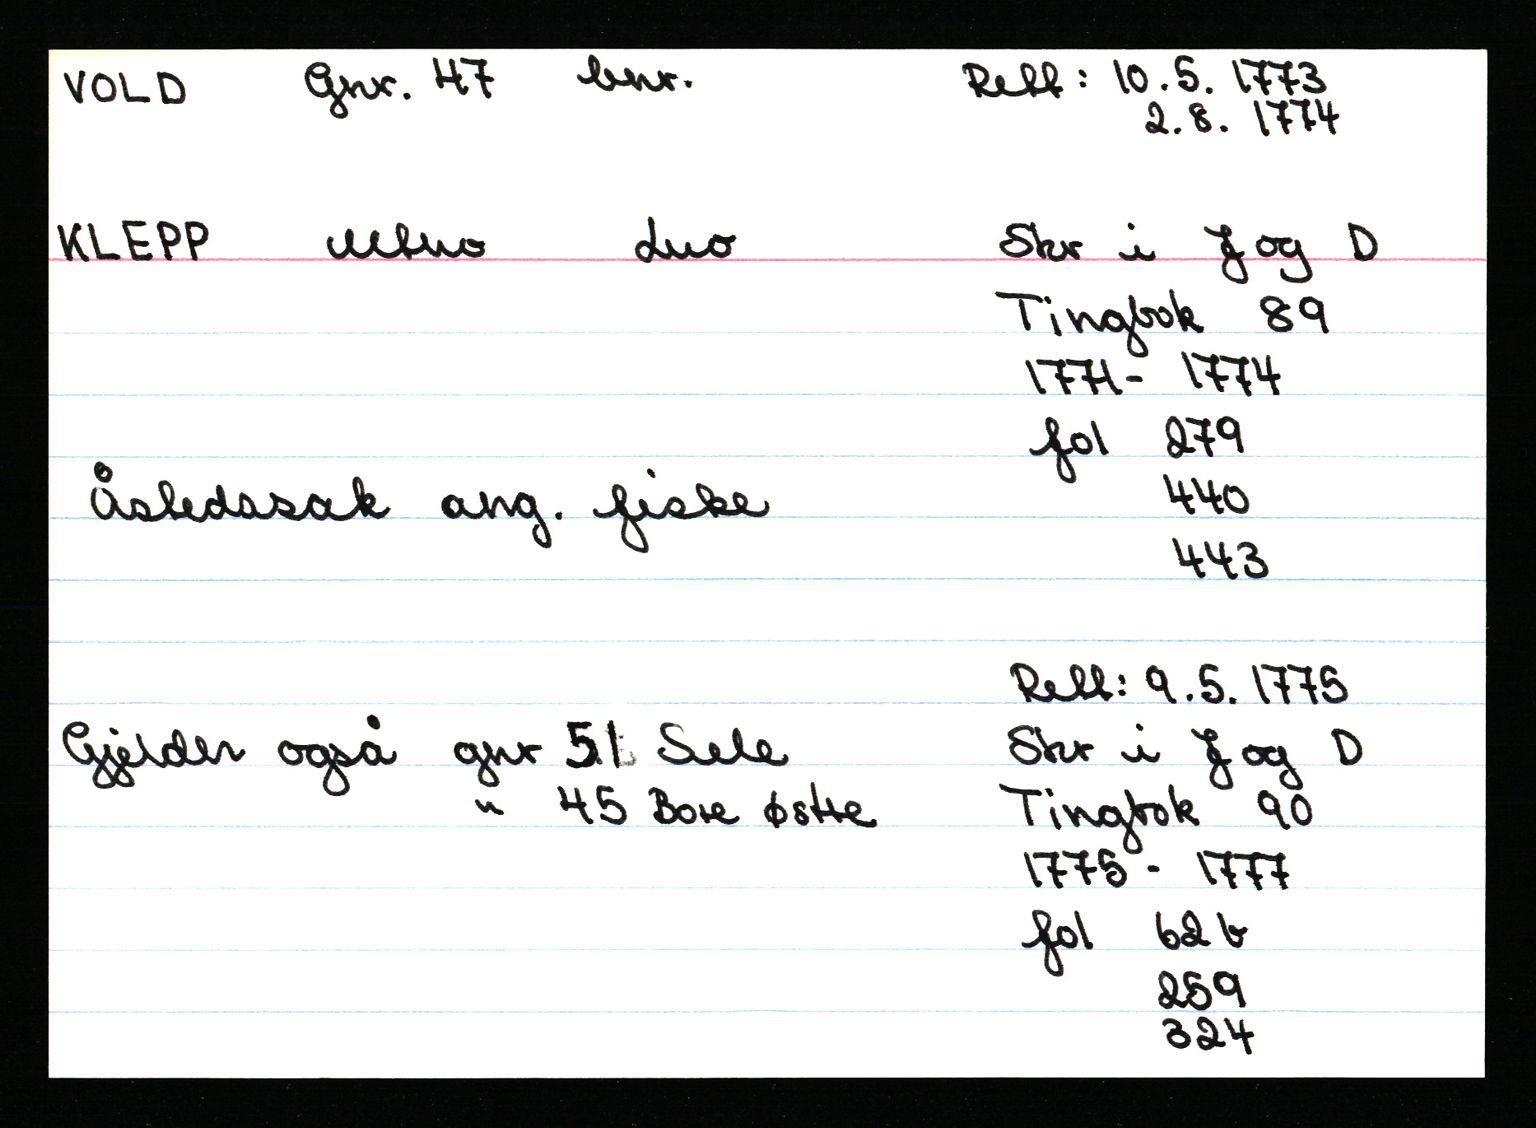 VOLD Gnr. 47 bnr. Rett: 10.5. 1773
2.8. 1774
KLEPP Mtno Lno Skr i J og D
Tingbok 89
1771- 1774
fol 279
Åstedssak ang. fiske 440
443
Rett: 9.5. 1775
Gjelder også gnr 51 Sele Skr i J og D
" 45 Bore østre Tingbok 90
1775 - 1777
fol 62b
259
324